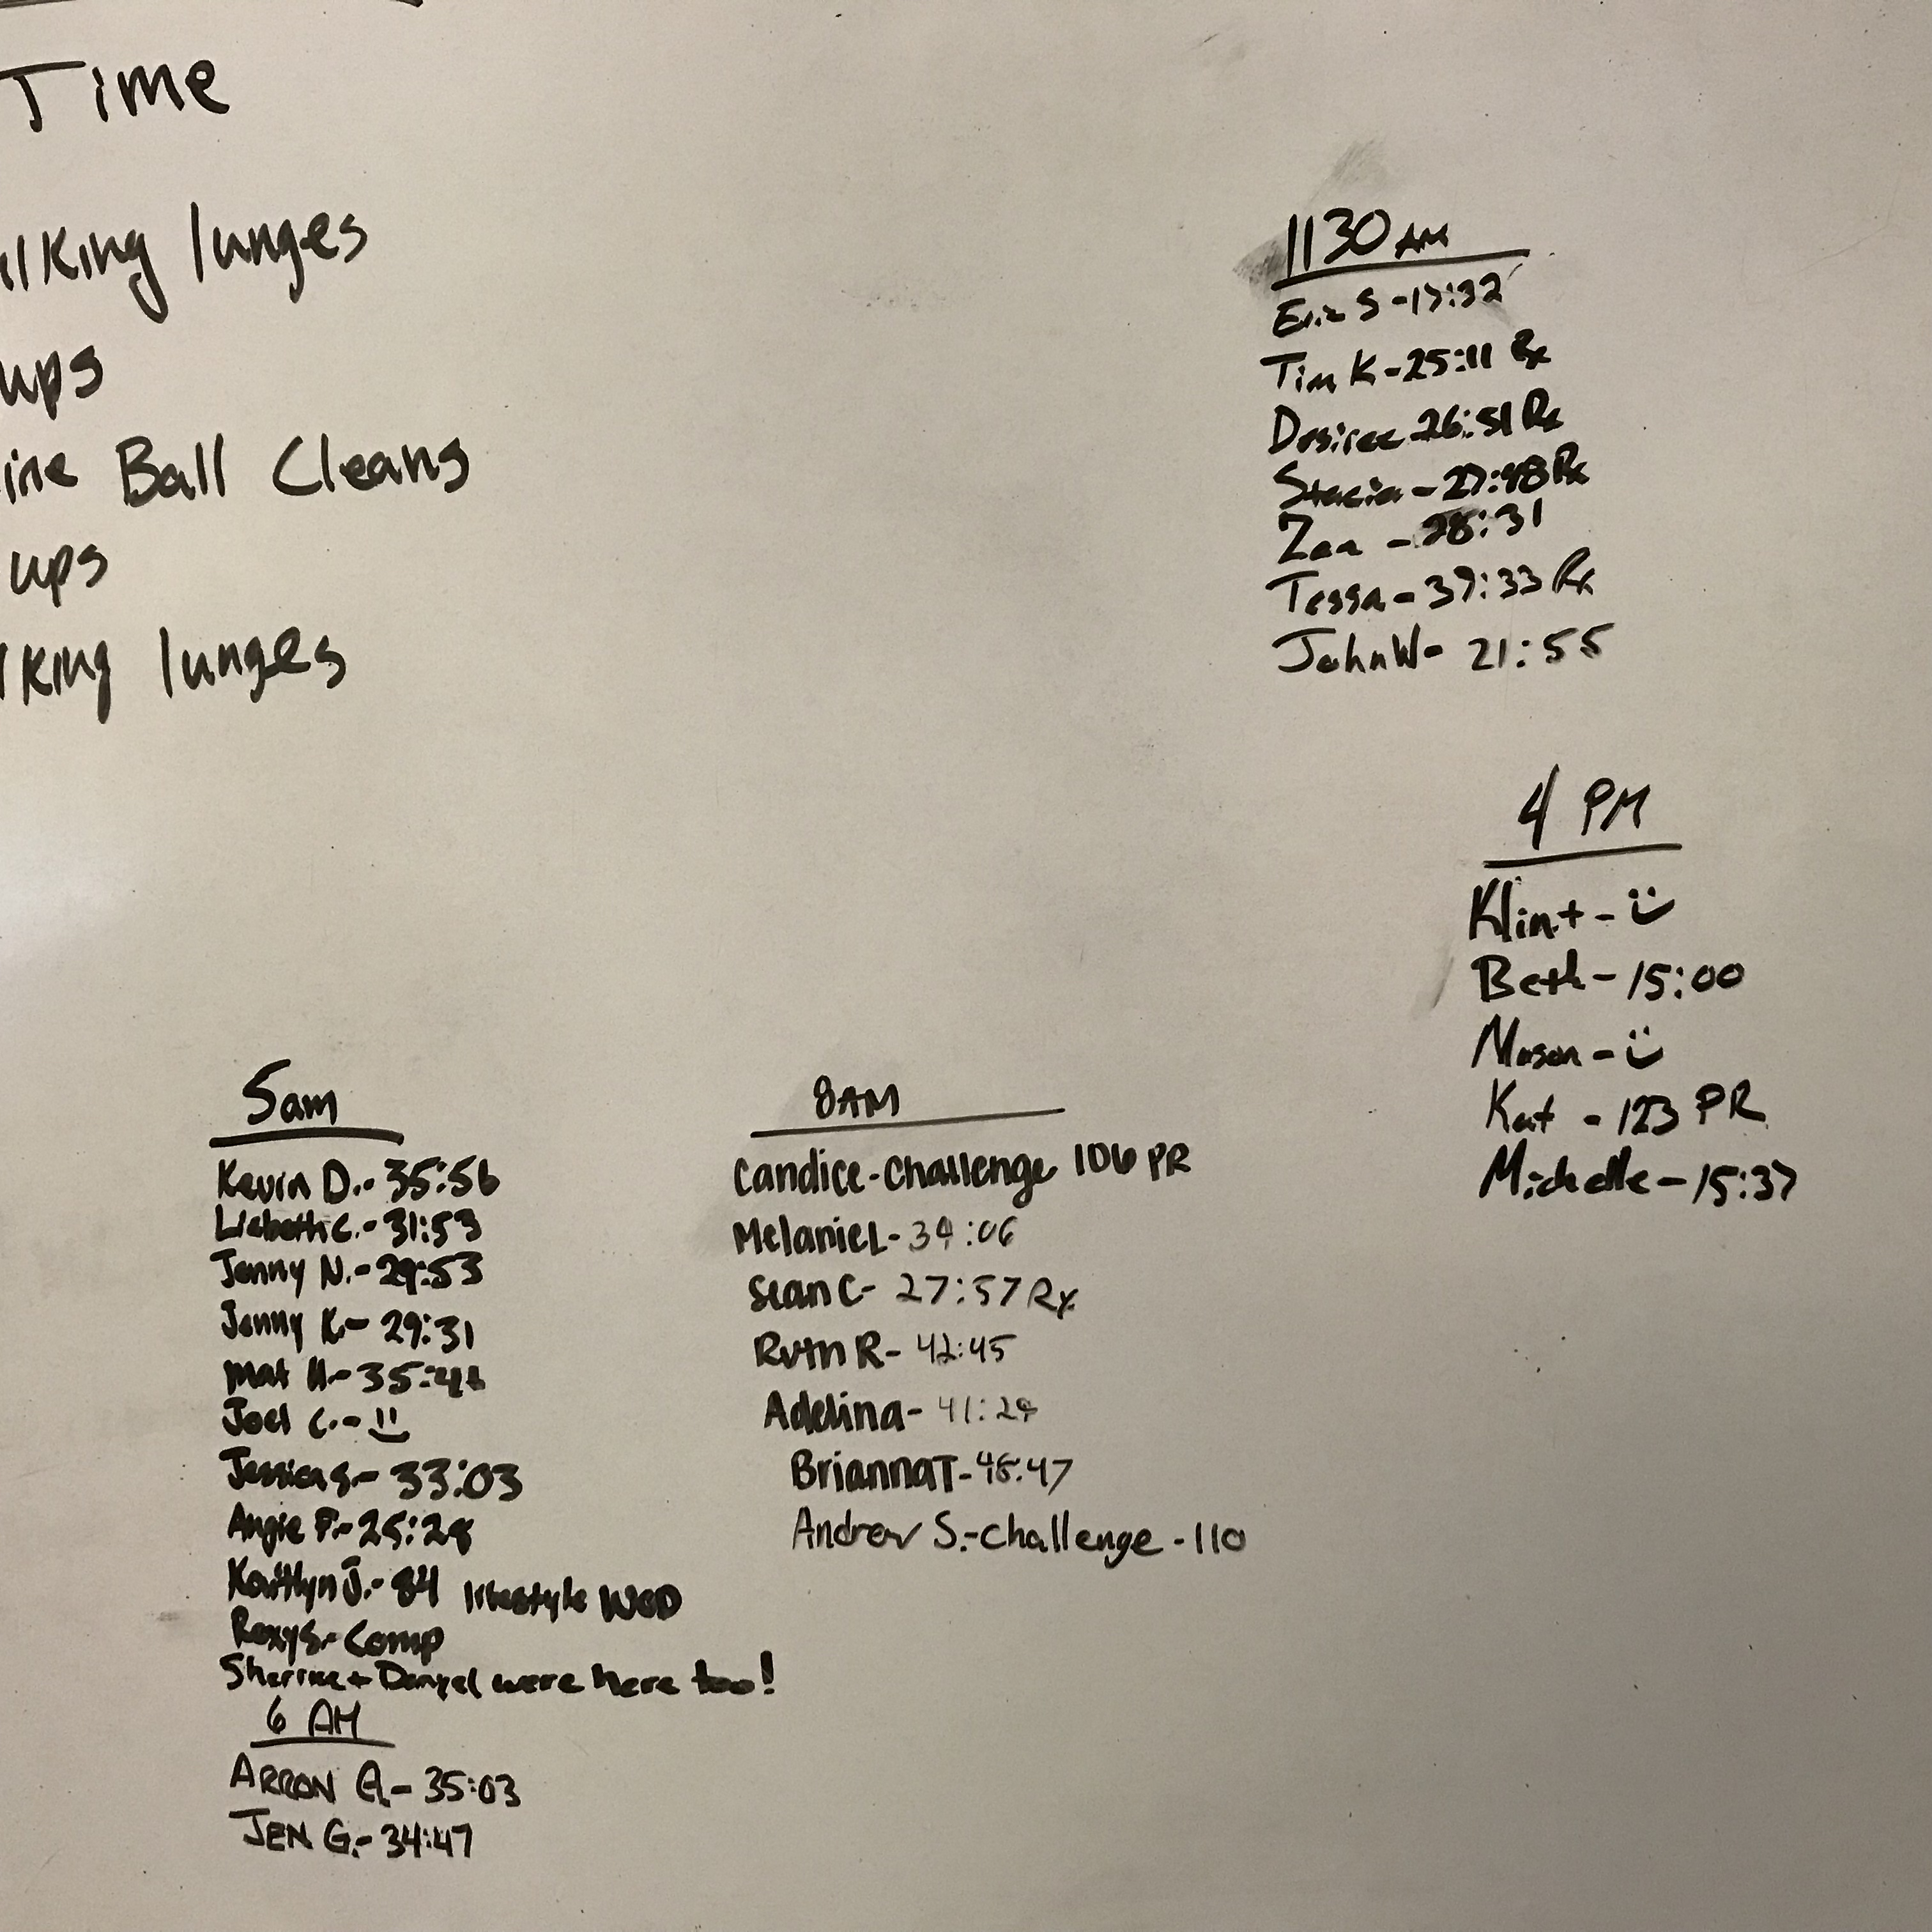 Time
lking lunges
ups
ine Ball Cleans
ups
king lunges
1130 AM
Eric S - 17:32
Tim K - 25:11 Rx
Desiree 26:51 Rx
Stacia - 27:48 Rx
Zea - 28:31
Tessa - 37:33 Rx
John W - 21:55
4 PM
Klint - :)
Beth - 15:00
Mason - :)
Kat - 123 PR
Michelle - 15:37
5am
Kevin D. - 35:56
Lisbeth C. - 31:53
Jenny N. - 29:53
Jenny K. - 29:31
Mat H. -
Joel C. - :)
Jessica S. - 33:03
Angie P. - 25:28
Kaitlyn J. - 84 lifestyle WOD
Roxy S. - Comp
Sherree + Danyel were here too!
6 AM
ARRON A. - 35:03
JEN G. - 34:47
8AM
Candice - Challenge 106 PR
Melanie L - 34:06
Sean C - 27:57 Rx
Ruth R - 42:45
Adelina - 41:24
Brianna T - 48:47
Andrew S. - Challenge - 110